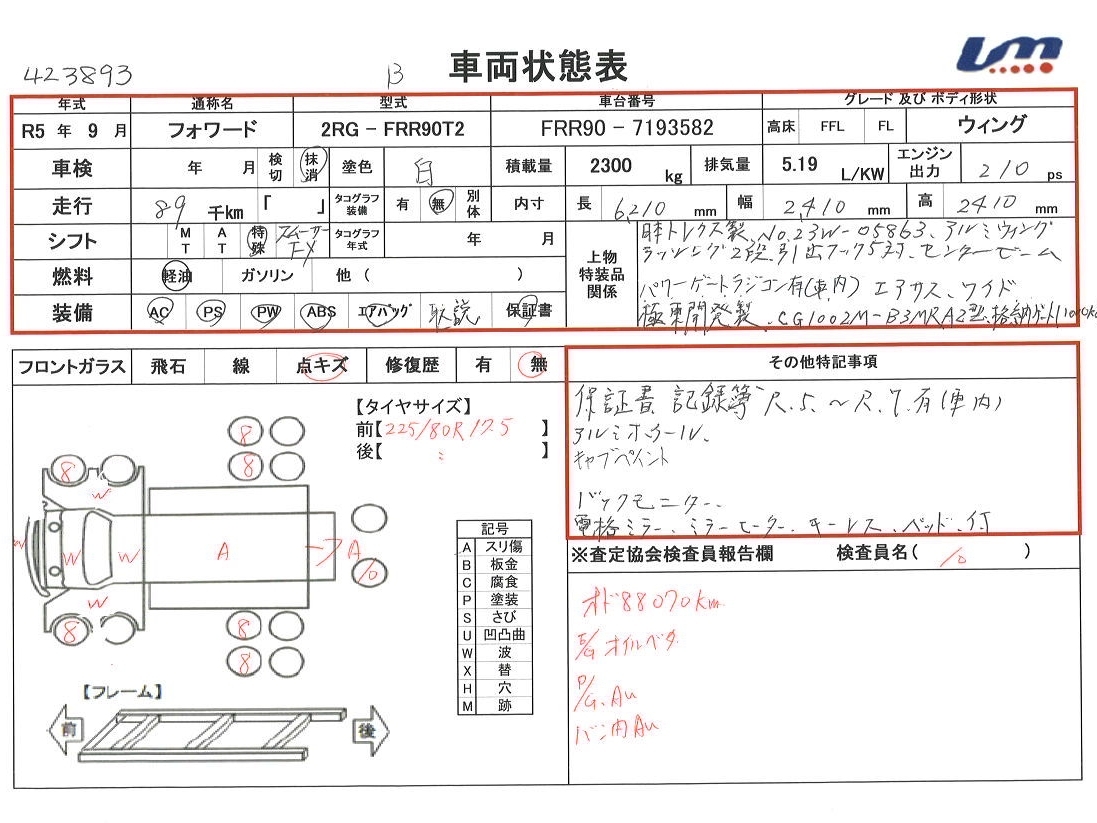 423893
B
車両状態表
um
年式 通称名 型式 車台番号 グレード 及び ボディ形状
R5 年 9 月 フォワード 2RG - FRR90T2 FRR90 - 7193582 高床 FFL FL ウィング
車検 年 月 検切 抹消 塗色 白 積載量 2300 kg 排気量 5.19 L/KW エンジン出力 210 ps
走行 89 千km 「 」 タコグラフ装備 有 無 別体 内寸 長 6,210 mm 幅 2,410 mm 高 2410 mm
シフト MT AT 特殊 スムーサーFX タコグラフ年式 年 月
燃料 軽油 ガソリン 他 ( )
装備 AC PS PW ABS エアバッグ 取説 保証書
上物特装品関係
日本トレクス製、No.23W-05863、アルミウィング
ラッシング2段、引出フック5対、センタービーム
パワーゲートラジコン有(車内) エアサス、ワイド
極東開発製、CG1002M-B3MRA2型、格納ゲート1000K
フロントガラス 飛石 線 点キズ 修復歴 有 無
その他特記事項
保証書 記録簿 R.5.~R.7.有(車内)
アルミホイール、
キャブペイント
バックモニター、
電格ミラー、ミラーヒーター、キーレス、ベッド、付
【タイヤサイズ】
前【225/80R 17.5 】
後【 〃 】
8
8
8
W
W W W A → A
10
W
8
8
8
記号
A スリ傷
B 板金
C 腐食
P 塗装
S さび
U 凹凸曲
W 波
X 替
H 穴
M 跡
【フレーム】
前 後
※査定協会検査員報告欄 検査員名( 10 )
オド88070km
E/G オイルベタ
P/G、Au
バン内Au